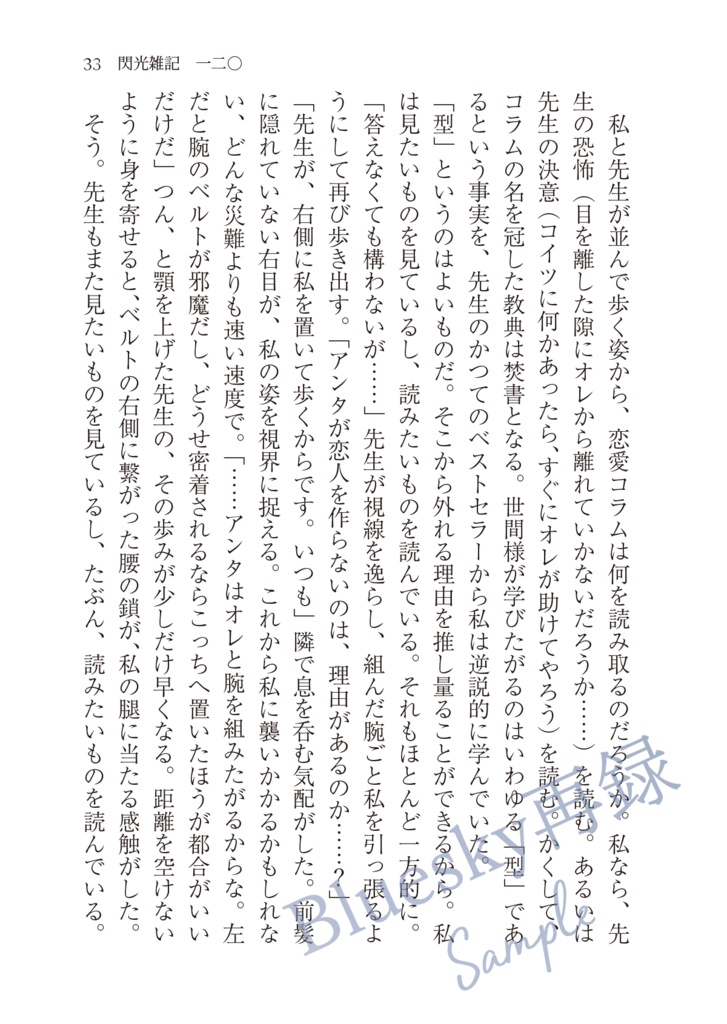 33 閃光雑記 一二〇
私と先生が並んで歩く姿から、恋愛コラムは何を読み取るのだろうか。私なら、先
生の恐怖（目を離した隙にオレから離れていかないだろうか……）を読む。あるいは
先生の決意（コイツに何かあったら、すぐにオレが助けてやろう）を読む。かくして、
コラムの名を冠した教典は焚書となる。世間様が学びたがるのはいわゆる「型」であ
るという事実を、先生のかつてのベストセラーから私は逆説的に学んでいた。
「型」というのはよいものだ。そこから外れる理由を推し量ることができるから。私
は見たいものを見ているし、読みたいものを読んでいる。それもほとんど一方的に。
「答えなくても構わないが……」先生が視線を逸らし、組んだ腕ごと私を引っ張るよ
うにして再び歩き出す。「アンタが恋人を作らないのは、理由があるのか……？」
「先生が、右側に私を置いて歩くからです。いつも」隣で息を呑む気配がした。前髪
に隠れていない右目が、私の姿を視界に捉える。これから私に襲いかかるかもしれな
い、どんな災難よりも速い速度で。「……アンタはオレと腕を組みたがるからな。左
だと腕のベルトが邪魔だし、どうせ密着されるならこっちへ置いたほうが都合がいい
だけだ」つん、と顎を上げた先生の、その歩みが少しだけ早くなる。距離を空けない
ように身を寄せると、ベルトの右側に繋がった腰の鎖が、私の腿に当たる感触がした。
そう。先生もまた見たいものを見ているし、たぶん、読みたいものを読んでいる。
Bluesky再録
Sample